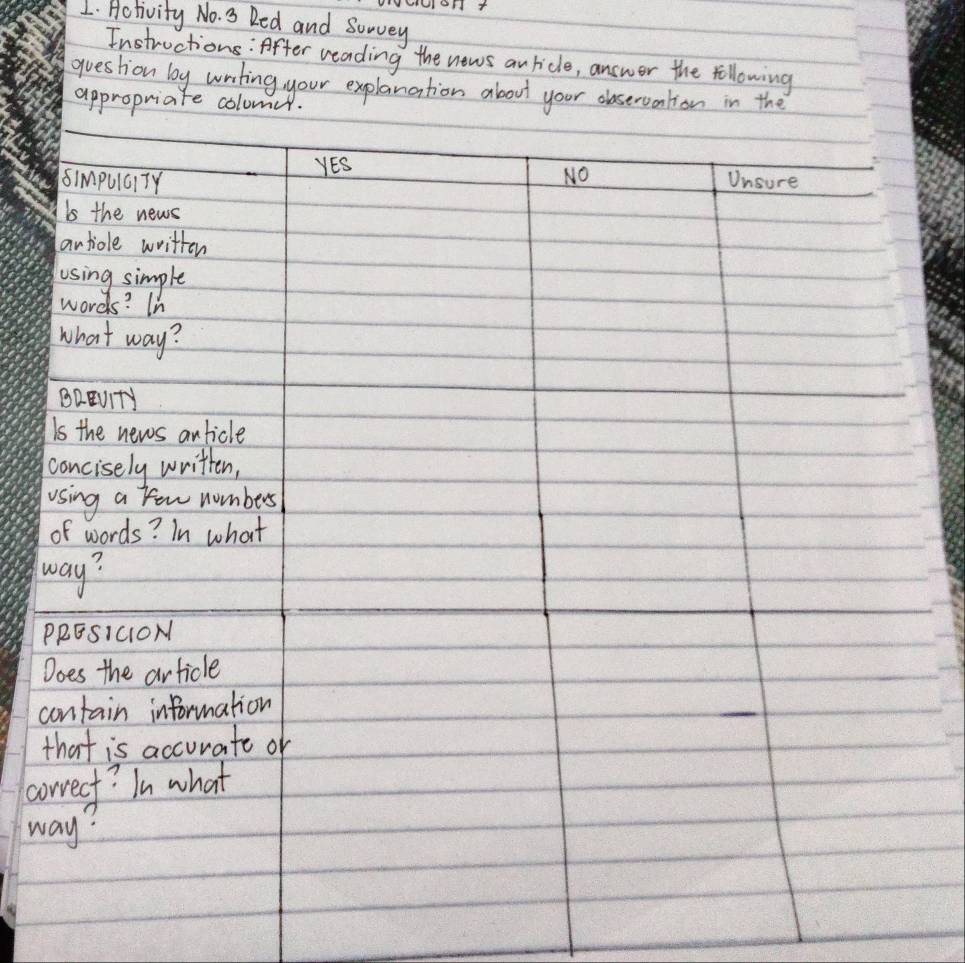 I. Activity No.3 Red and Survey
Instructions: After reading the news article, answer the following
question by writing your explanation about your observation in the
appropriate column.
YES
NO
Unsure
SIMPLICITY
Is the news
article written
using simple
words? In
what way?
BREVITY
Is the news article
concisely written,
using a few numbers
of words? In what
way?
PRESICION
Does the article
contain information
that is accurate or
correct? In what
way?